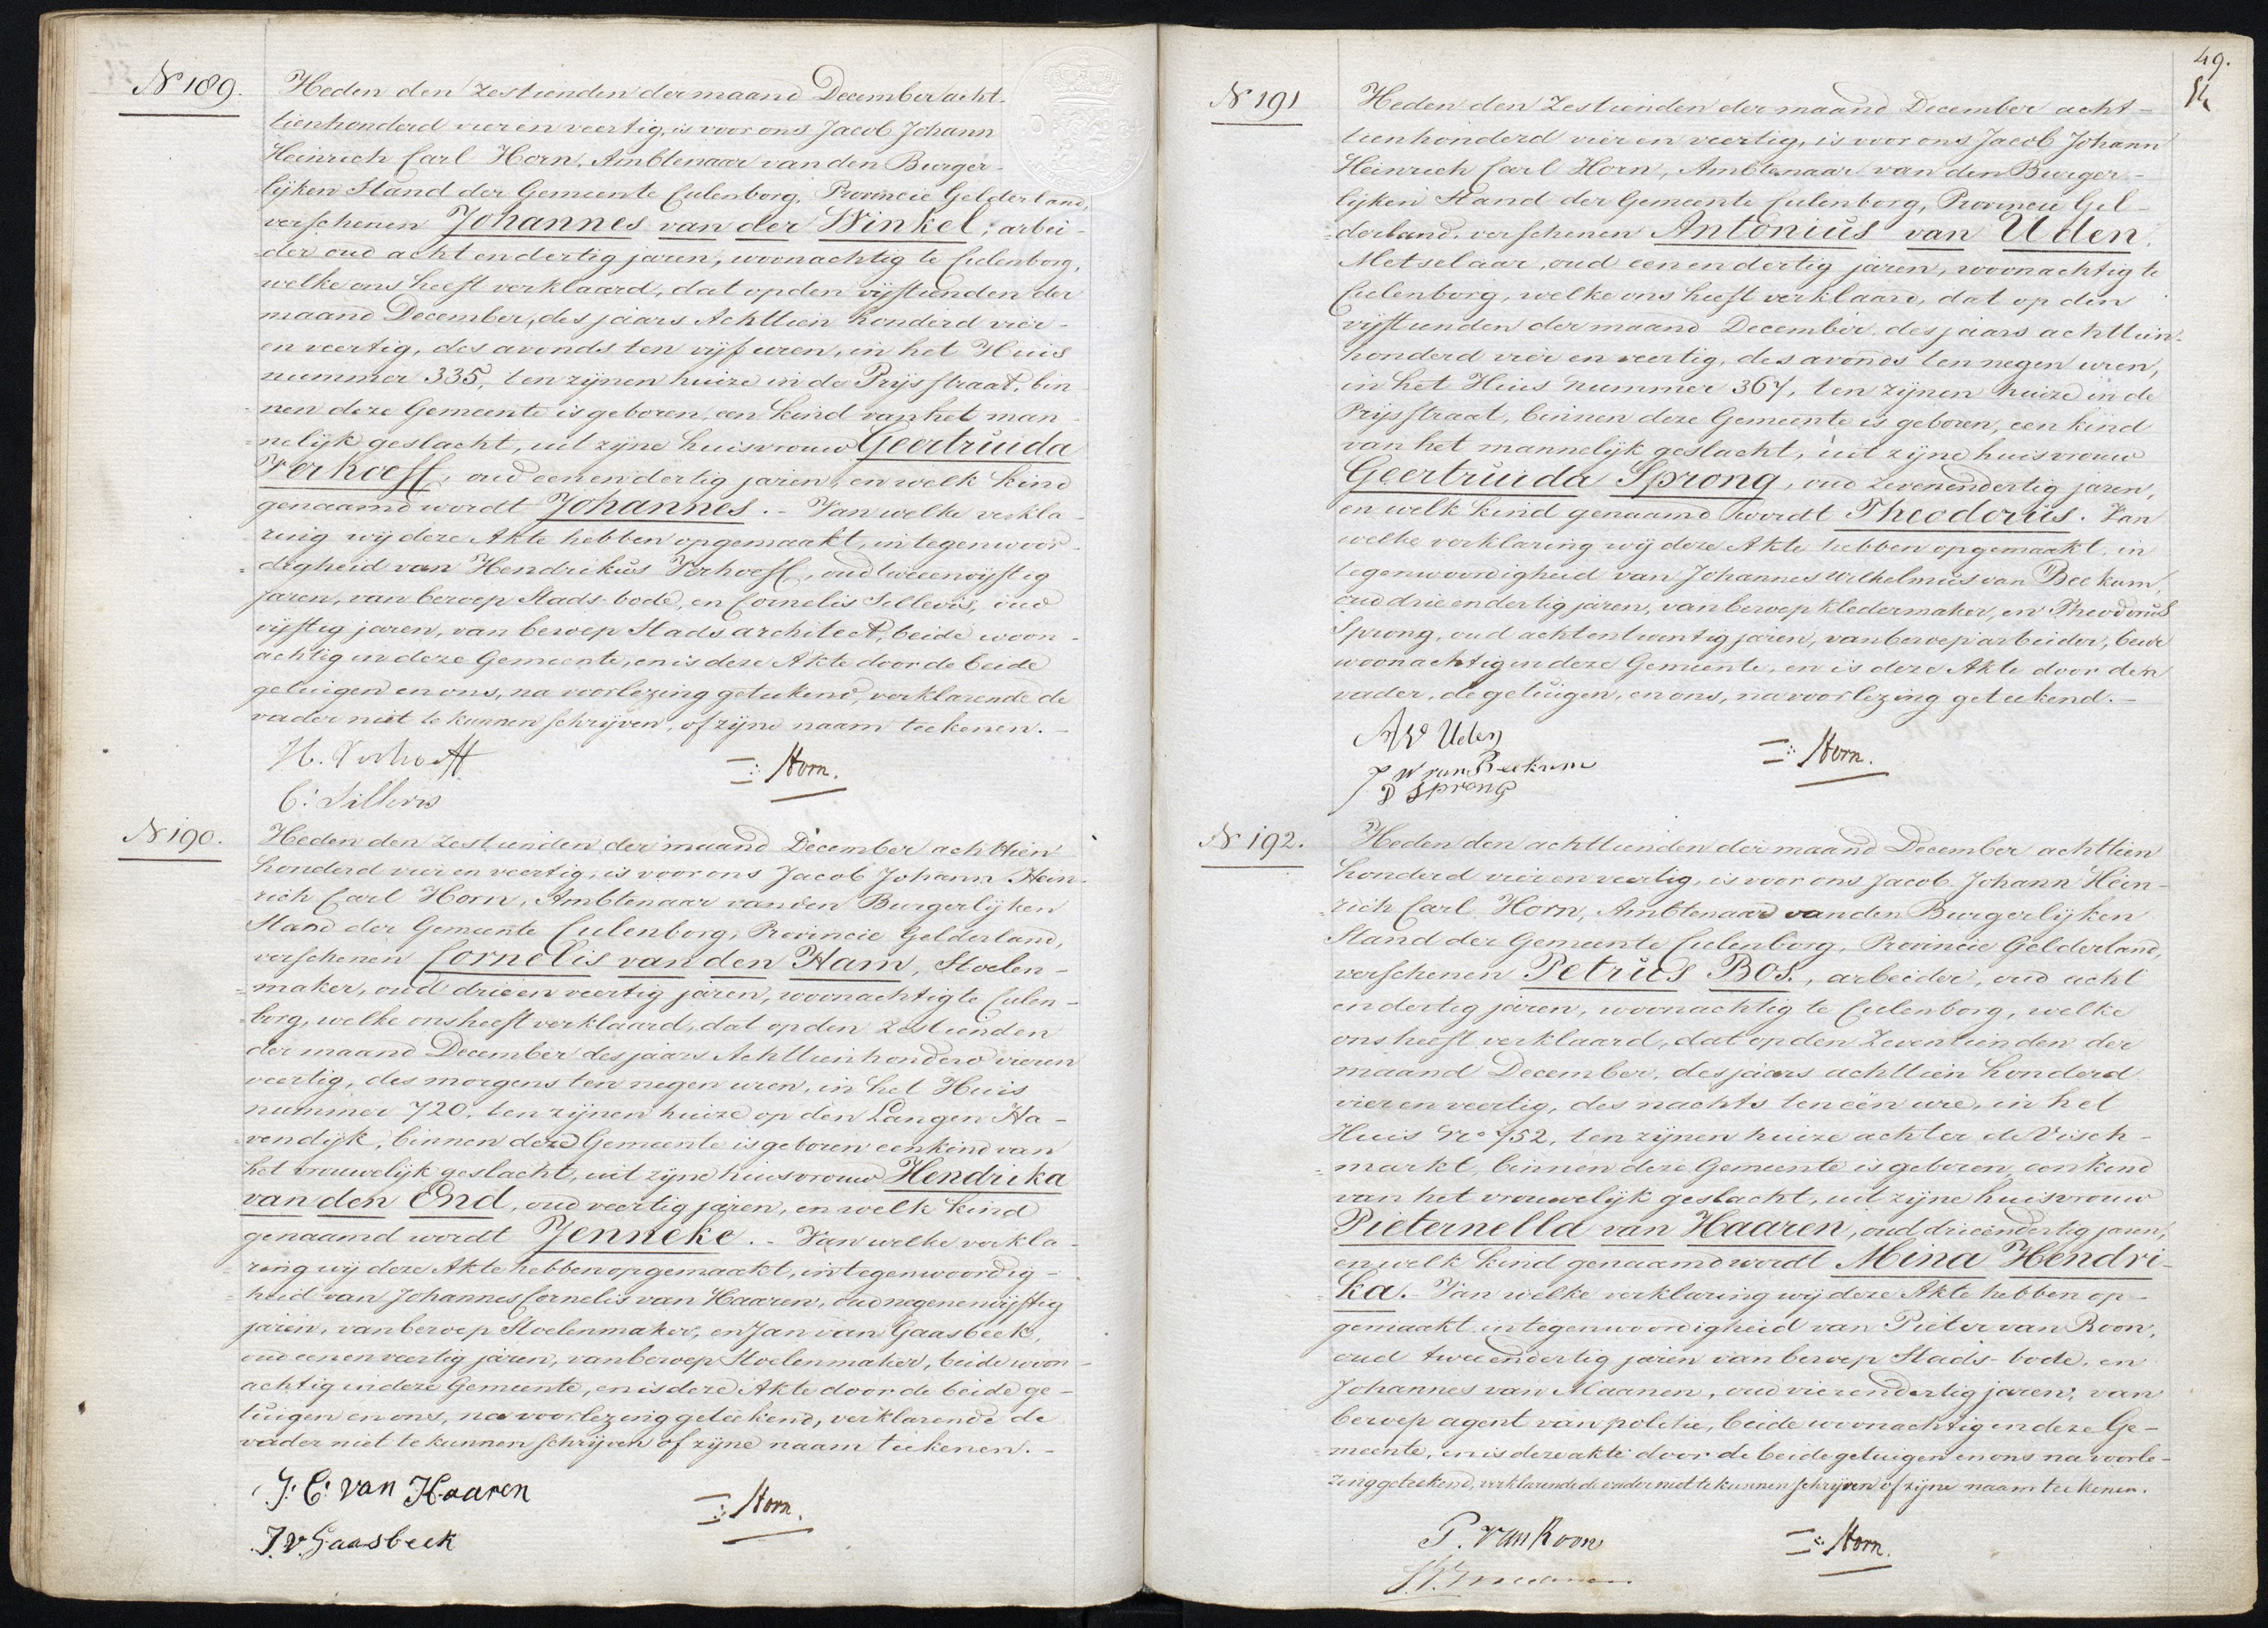 N 189.
Heden den zestienden der maand December acht-
tienhonderd vier en veertig, is voor ons Jacob Johann
Heinrich Carl Horn, Ambtenaar van den Burger-
lijken Stand der Gemeente Culenborg, Provincie Gelderland,
verschenen Johannes van der Winkel, arbei-
der oud acht en dertig jaren, woonachtig te Culenborg,
welke ons heeft verklaard, dat op den vijftienden der
maand December, des jaars Achttien honderd vier-
en veertig, des avonds ten vijf uren, in het Huis
nummer 335, ten zijnen huize in de Prijsstraat, bin-
nen deze Gemeente is geboren een kind van het man-
nelijk geslacht, uit zijne huisvrouw Geertruida
Verhoeff, oud een en dertig jaren, en welk kind
genaamd wordt Johannes. - Van welke verkla-
ring wij deze Akte hebben opgemaakt, in tegenwoor-
digheid van Hendrikus Verhoeff, oud tweeenvijftig
jaren, van beroep Stads-bode, en Cornelis Sillevis, oud
vijftig jaren, van beroep Stads architect, beide woon-
achtig in deze Gemeente, en is deze Akte door de beide
getuigen en ons, na voorlezing geteekend, verklarende de
vader niet te kunnen schrijven, of zijne naam teekenen. -
H. Verhoeff
Horn.
C: Sillevis
N 190.
Heden den zestienden der maand December achttien
honderd vier en veertig, is voor ons Jacob Johann Hein-
rich Carl Horn, Ambtenaar van den Burgerlijken
Stand der Gemeente Culenborg, Provincie Gelderland,
verschenen Cornelis van den Ham, Stoelen-
maker, oud drie en veertig jaren, woonachtig te Culen-
borg, welke ons heeft verklaard, dat op den zestienden
der maand December des jaars Achttien honderd vieren
veertig, des morgens ten negen uren, in het Huis
nummer 720, ten zijnen huize op den Langen Ha-
vendijk, binnen deze Gemeente is geboren een kind van
het vrouwelijk geslacht, uit zijne huisvrouw Hendrika
van den End, oud veertig jaren, en welk kind
genaamd wordt Jenneke. - Van welke verkla-
ring wij deze Akte hebben opgemaakt, in tegenwoordig-
heid van Johannes Cornelis van Haaren, oud negenenvijftig
jaren, van beroep Stoelenmaker, en Jan van Gaasbeek,
oud een en veertig jaren, van beroep Stoelenmaker, beide woon-
achtig in deze Gemeente, en is deze Akte door de beide ge-
tuigen en ons, na voorlezing geteekend, verklarende de
vader niet te kunnen schrijven of zijne naam teekenen. -
J: C: van Haaren
Horn.
J. v. Gaasbeek
49.
N 191
Heden den Zestienden der maand December acht-
tienhonderd vier en veertig, is voor ons Jacob Johann
Heinrich Carl Horn, Ambtenaar van den Burger-
lijken Stand der Gemeente Culenborg, Provincie Gel-
derland, verschenen Antonius van Uden,
Metselaar, oud een en dertig jaren, woonachtig te
Culenborg, welke ons heeft verklaard, dat op den
vijftienden der maand December des jaars achttien-
honderd vier en veertig, des avonds ten negen uren,
in het Huis nummer 367, ten zijnen huize in de
Prijsstraat, binnen deze Gemeente is geboren, een kind
van het mannelijk geslacht, uit zijne huisvrouw
Geertruida Sprong, oud zevenendertig jaren,
en welk kind genaamd wordt Theodorus. Van
welke verklaring wij deze Akte hebben opgemaakt, in
tegenwoordigheid van Johannes Wilhelmus van Beekum,
oud drie en dertig jaren, van beroep kledermaker, en Theodorus
Sprong, oud achtentwintig jaren, van beroep arbeider, beide
woonachtig in deze Gemeente, en is deze Akte door den
vader, de getuigen, en ons, na voorlezing geteekend. -
A V Uden
Horn.
J W van Beekum
D Sprong
N 192.
Heden den achttienden der maand December achttien
honderd vier en veertig, is voor ons Jacob Johann Hein-
rich Carl Horn, Ambtenaar van den Burgerlijken
Stand der Gemeente Culenborg, Provincie Gelderland,
verschenen Petrus Bos., arbeider, oud acht
en dertig jaren, woonachtig te Culenborg, welke
ons heeft verklaard, dat op den Zeventienden der
maand December, des jaars achttien honderd
vier en veertig, des nachts ten één ure, in het
Huis No 752, ten zijnen huize achter de Visch-
markt, binnen deze Gemeente is geboren, een kind
van het vrouwelijk geslacht, uit zijne huisvrouw
Pieternella van Haaren, oud drieëndertig jaren,
en welk kind genaamd wordt Mina Hendri-
ka. - Van welke verklaring wij deze Akte hebben op-
gemaakt in tegenwoordigheid van Pieter van Roon,
oud tweeendertig jaren van beroep Stads-bode, en
Johannes van Maanen, oud vierendertig jaren, van
beroep agent van politie, beide woonachtig in deze Ge-
meente, en is deze akte door de beide getuigen en ons na voorle-
zing geteekend, verklarende de vader niet te kunnen schrijven of zijne naam teekenen.
P. van Roon
Horn.